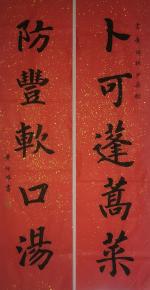 卜可蓬蒿菜
防豐軟口湯